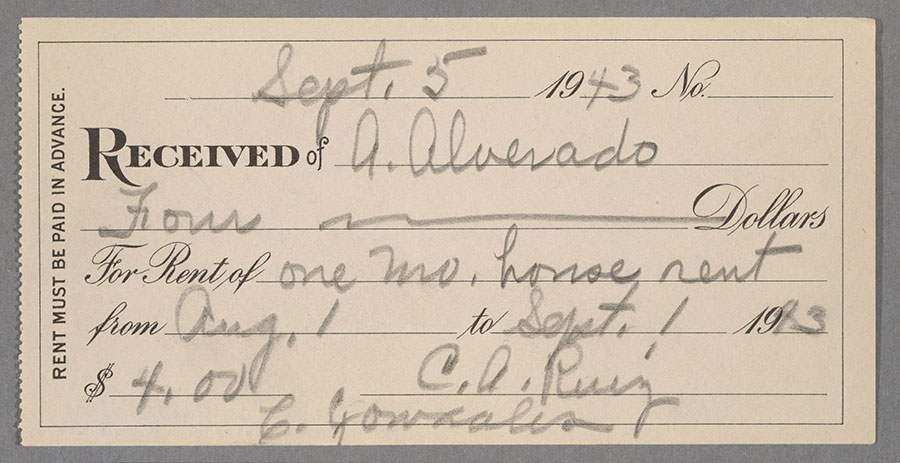 RENT MUST BE PAID IN ADVANCE.
Sept. 5 1943 No.
RECEIVED of A. Alverado
Four Dollars
For Rent of one mo. house rent
from Aug. 1 to Sept. 1 1943
$ 4.00 C. A. Ruiz
E. Gonzales